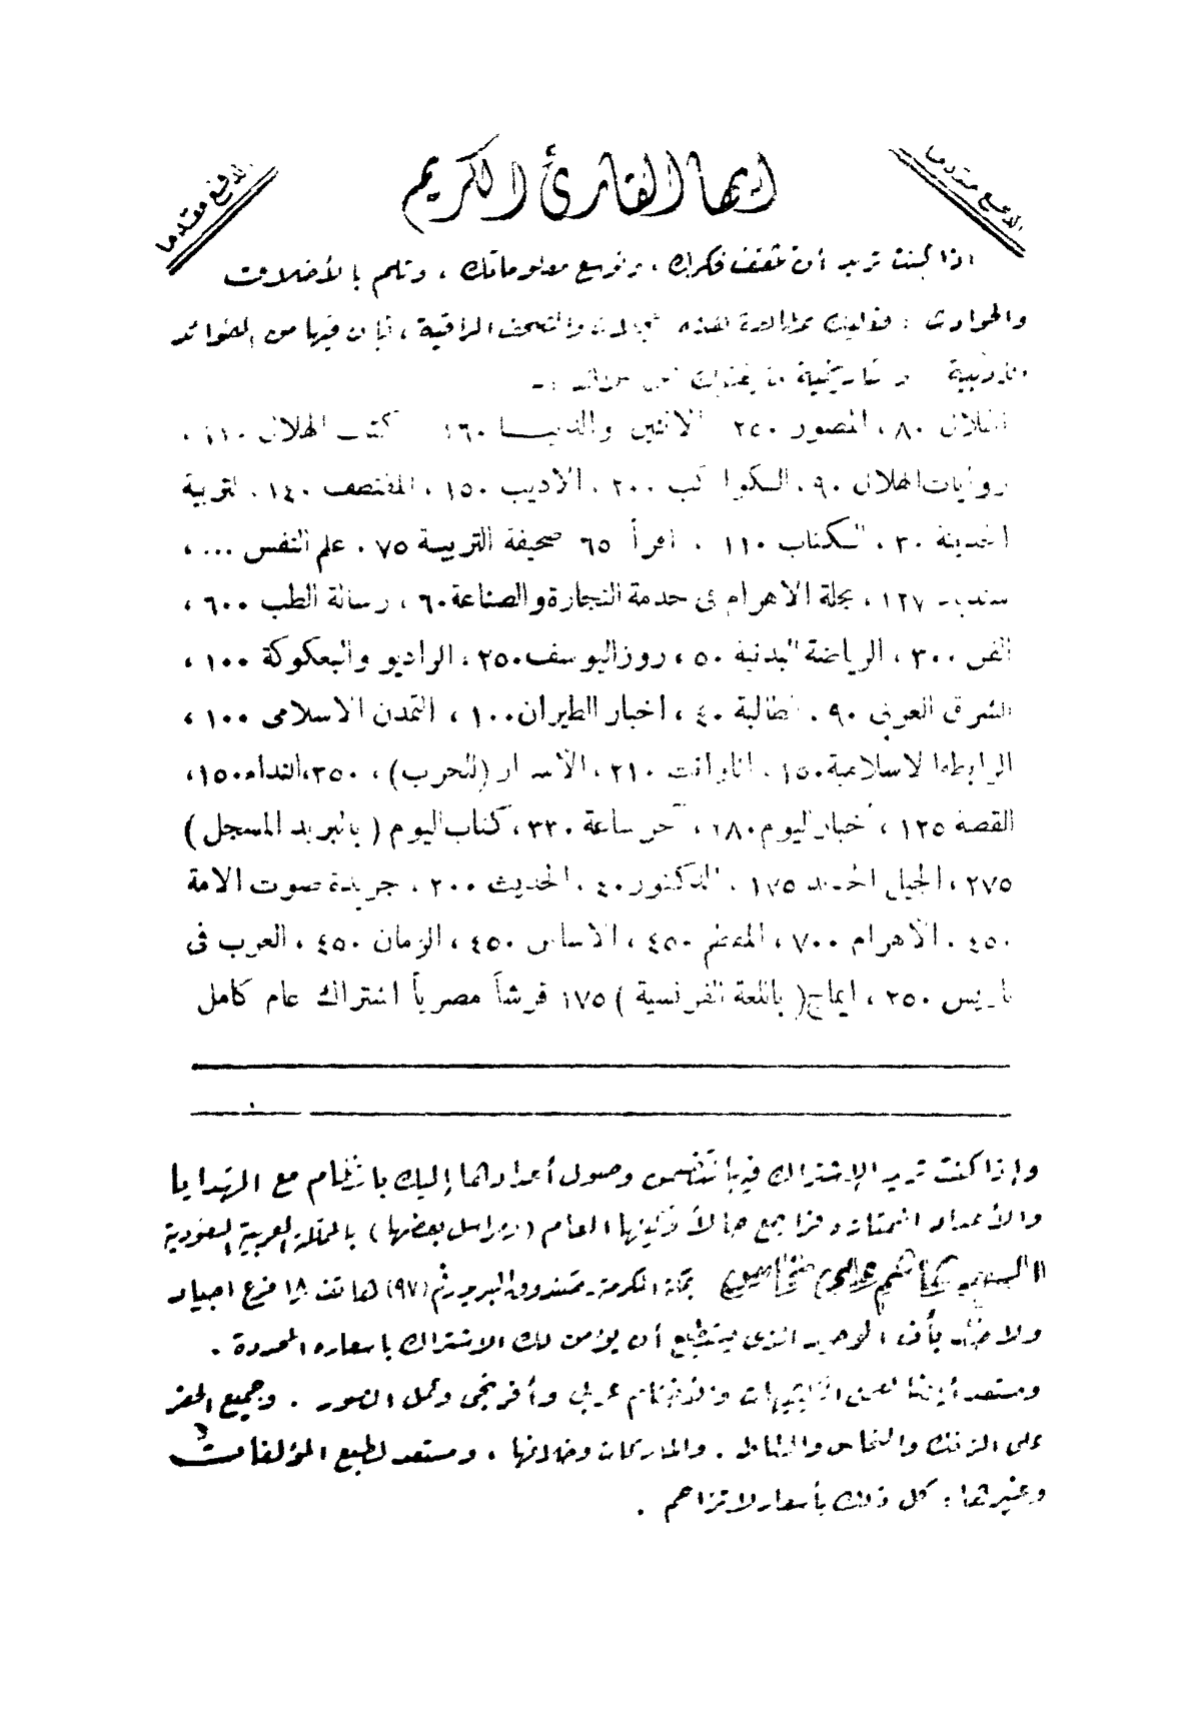 الدفع مقدما
ايها القارئ الكريم
الدفع مقدما
اذا كنت تريد أن تثقف فكرك ، وتوسع معلوماتك ، وتلم بالأخلاق
والحوادث : فعليك بمطالعة هذه المجلات والصحف الراقية ، فإن فيها من الفوائد
الأدبية و تاريخية ما يغنيك عن
الهلال ٨٠ ، المصور ٢٤٠ الاثنين والدنيا ١٦٠ كتاب الهلال ١١٠ ،
روايات الهلال ٩٠ ، الكواكب ٢٠٠ ، الاديب ١٥٠ ، المقتطف ١٤٠ ، التربية
الحديثة ٣٠ ، الكتاب ١١٠ ، اقرأ ٦٥ صحيفة التربية ٧٥ ، علم النفس ... ،
سندباد ١٢٧ ، مجلة الاهرام فى خدمة التجارة والصناعة ٦٠ ، رسالة الطب ٦٠٠ ،
الفن ٣٠٠ ، الرياضة البدنية ٥٠ ، روز اليوسف ٢٥٠ ، الراديو والبعكوكة ١٠٠ ،
الشرق العربى ٩٠ ، الطالبة ٤٠ ، اخبار الطيران ١٠٠ ، التمدن الاسلامى ١٠٠ ،
الرابطة الاسلامية ١٥٠ ، ٢١٠ ، الاسرار (للحرب) ، ٣٥٠ ، النداء ١٥٠ ،
القصة ١٢٥ ، أخبار اليوم ١٨٠ ، آخر ساعة ٣٣٠ ، كتاب اليوم ( بالبريد المسجل )
٢٧٥ ، الجيل الجديد ١٧٥ ، الدكتور ٤٠ ، الحديث ٢٠٠ ، جريدة صوت الامة
٤٥٠ ، الاهرام ٧٠٠ ، المقطم ٤٥٠ ، الاساس ٤٥٠ ، الزمان ٤٥٠ ، العرب فى
باريس ٢٥٠ ، ايماج ( باللغة الفرنسية ) ١٧٥ قرشاً مصرياً اشتراك عام كامل
وإذا كنت تريد الإشتراك فيها لتضمن وصول أعدادها إليك بانتظام مع الهدايا
والأعداد الممتازة فراجع حالاً وكيلها العام ( ومراسل بعضها ) بالمملكة العربية السعودية
السيد هاشم على نحاس بمكة المكرمة ـ صندوق البريد رقم (٩٧) هاتف ١٨ فرع اجياد
ولا شك بأنه الوحيد الذى يستطيع أن يؤمن لك الاشتراك بأسعاره المحددة .
ومستعد أيضا لعمل الكليشيهات والأختام عربي وأفرنجى وعمل الصور . وجميع الحفر
على الزنك والنحاس والمطاط . والماركات وخلافها ، ومستعد لطبع المؤلفات
وغيرها ، كل ذلك بأسعار لا تزاحم .